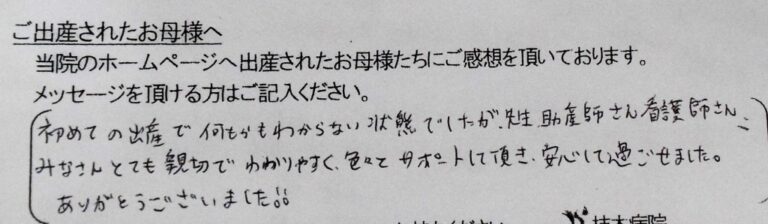 ご出産されたお母様へ
当院のホームページへ出産されたお母様たちにご感想を頂いております。
メッセージを頂ける方はご記入ください。
初めての出産で何もかもわからない状態でしたが、先生、助産師さん、看護師さん、
みなさんとても親切でわかりやすく、色々とサポートして頂き、安心して過ごせました。
ありがとうございました!!
病院